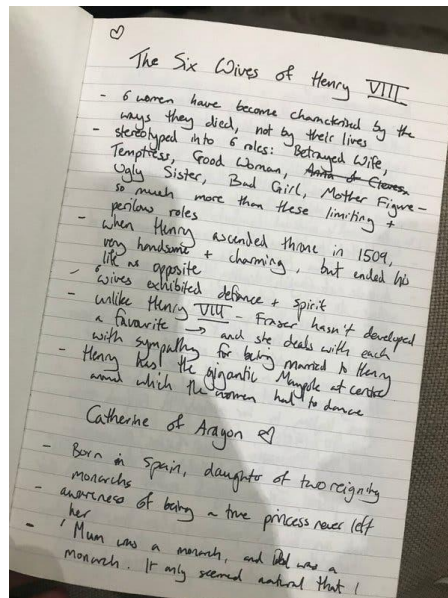 The Six Wives of Henry VIII
- 6 women have become characterised by the
ways they died, not by their lives
- stereotyped into 6 roles: Betrayed Wife,
Temptress, Good Woman, Anna of Cleves,
Ugly Sister, Bad Girl, Mother Figure -
so much more than these limiting +
perilous roles
- when Henry ascended throne in 1509,
very handsome + charming, but ended his
life as opposite
- 6 wives exhibited defiance + spirit
- unlike Henry VIII - Fraser hasn't developed
a favourite → and she deals with each
with sympathy for being married to Henry
- Henry was the gigantic Maypole at centre
around which the women had to dance
Catherine of Aragon
- Born in Spain, daughter of two reigning
monarchs
- awareness of being a true princess never left
her
- 'Mum was a monarch, and Dad was a
monarch. It only seemed natural that I